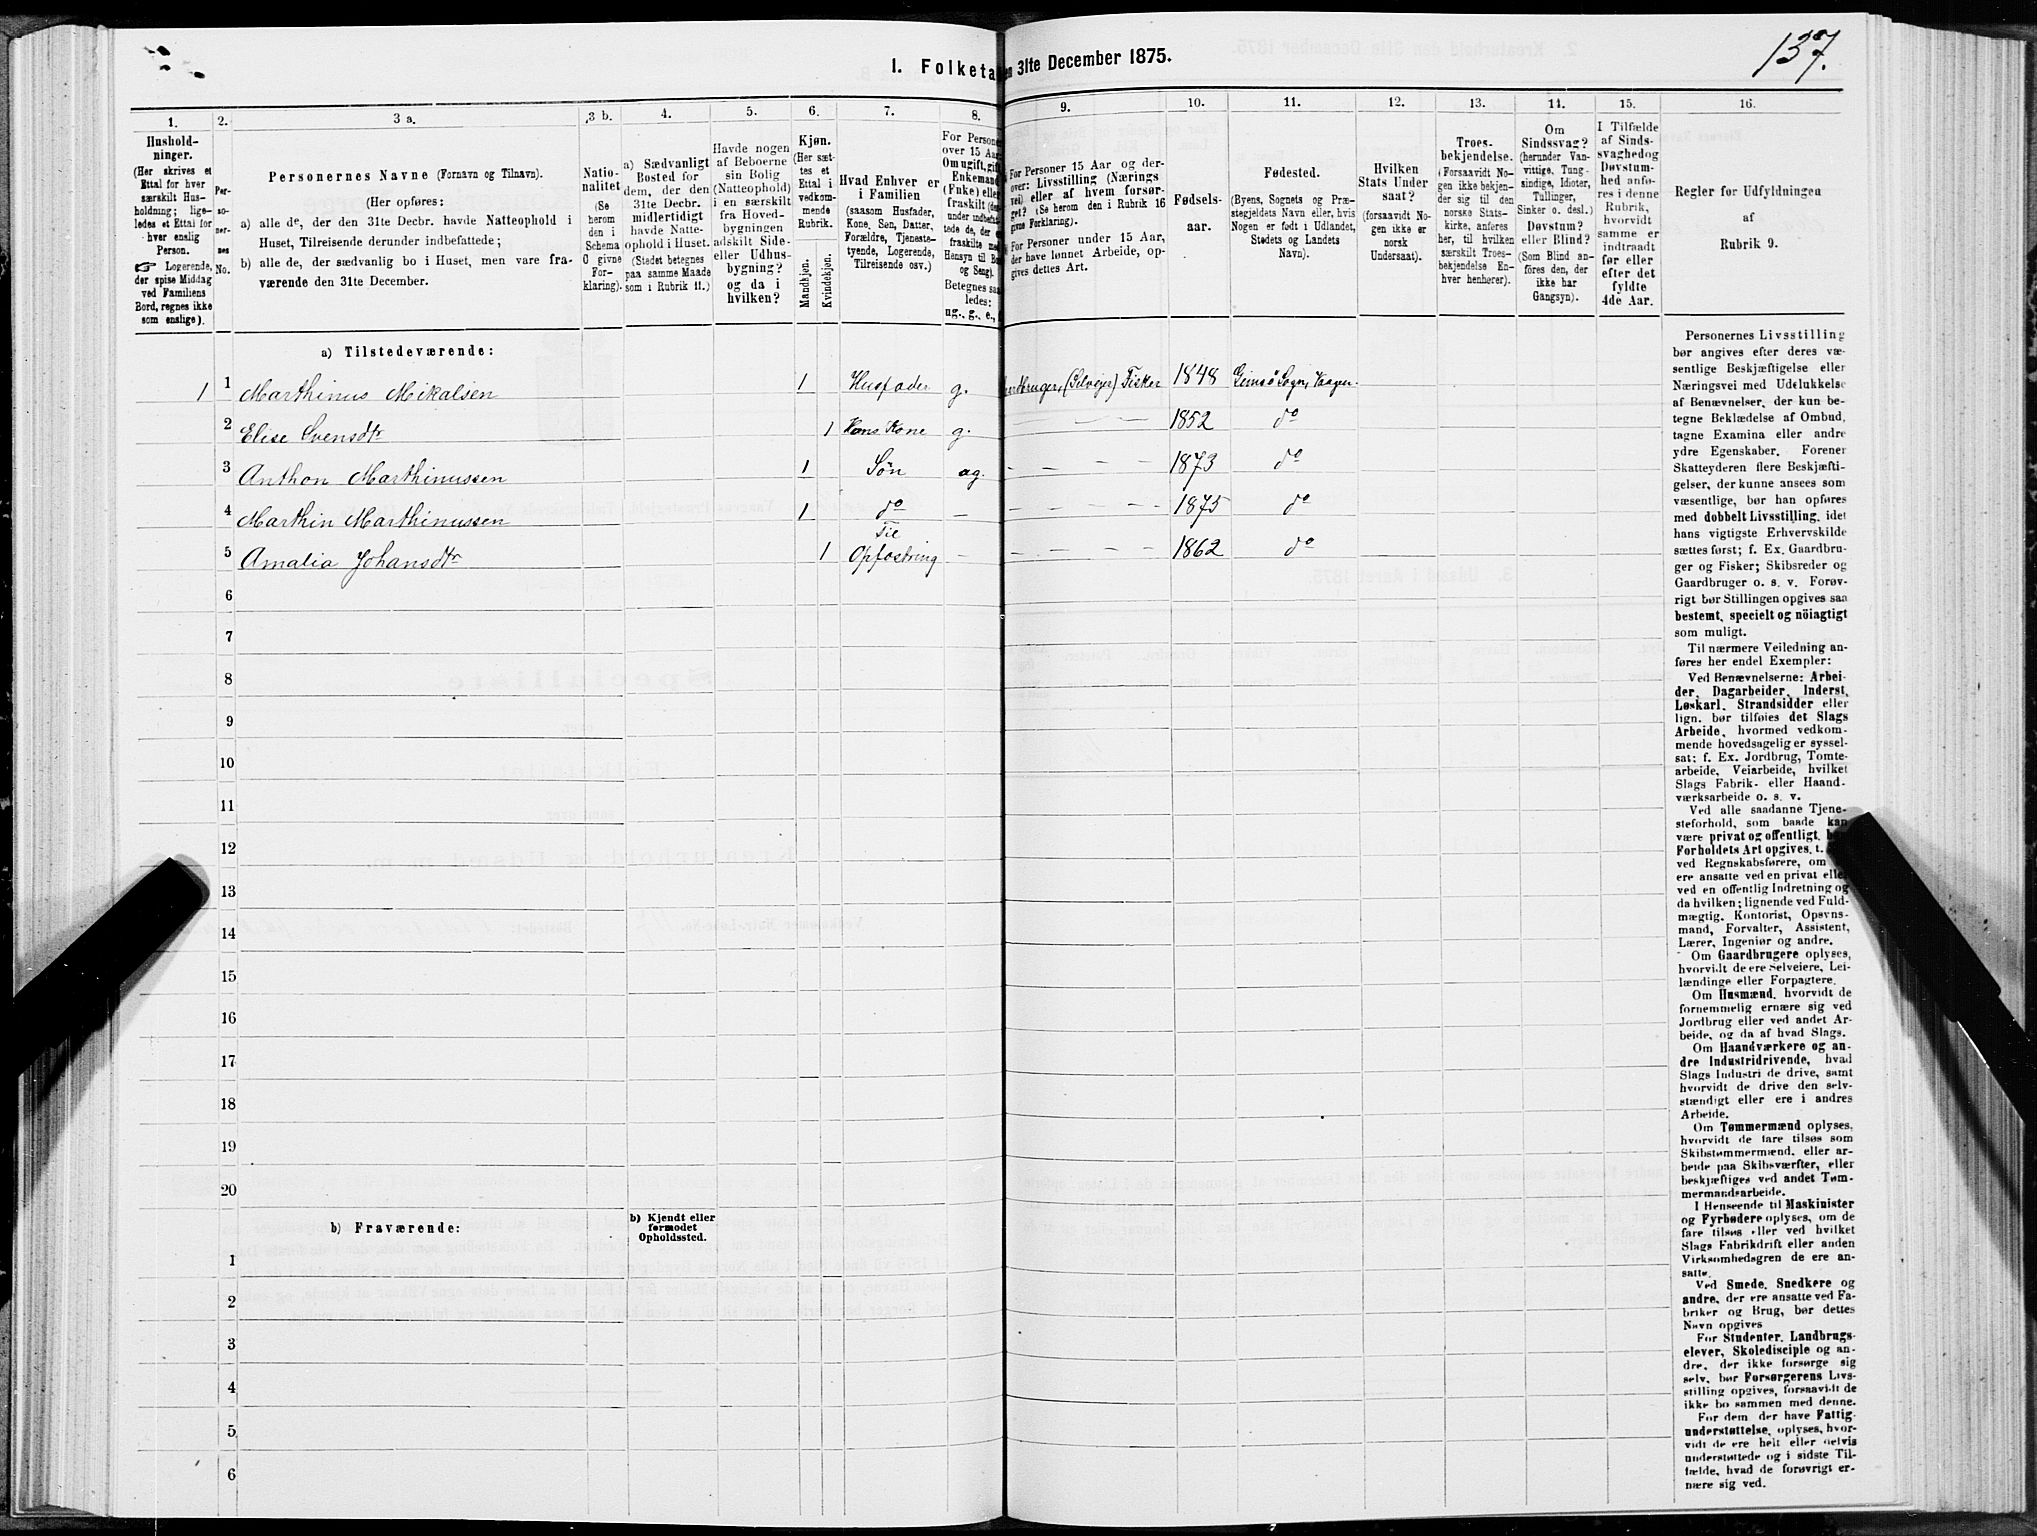 137.
I. Folketa en 31te December 1875.
1. 2. 3 a. 3 b. 4. 5. 6. 7. 8. 9. 10. 11. 12. 13. 14. 15. 16.
Hushold-
ninger.
(Her skrives et
Ettal for hver
særskilt Hus-
holdning; lige-
ledes et Ettal for
hver enslig
Person.
☞ Logerende,
der spise Middag
ved Familiens
Bord, regnes ikke
som enslige).
Per-
so-
ner-
nes
No.
Personernes Navne (Fornavn og Tilnavn).
(Her opføres:
a) alle de, der den 31te Decbr. havde Natteophold i
Huset, Tilreisende derunder indbefattede;
b) alle de, der sædvanlig bo i Huset, men vare fra-
værende den 31te December.
Natio-
nalitet
(Se
herom
den i
Schema
O givne
For-
klaring).
a) Sædvanligt
Bosted for
dem, der den
31te Decbr.
midlertidigt
havde Natte-
ophold i Huset.
(Stedet betegnes
paa samme Maade
som i Rubrik 11.)
Havde nogen
af Beboerne
sin Bolig
(Natteophold)
i en særskilt
fra Hoved-
bygningen
adskilt Side-
eller Udhus-
bygning?
og da i
hvilken?
Kjøn.
(Her sæt-
tes et
Ettal i
vedkom-
mende
Rubrik.
Mandkjøn.
Kvindekjøn.
Hvad Enhver er
i Familien
(saasom Husfader,
Kone, Søn, Datter,
Forældre, Tjeneste-
tyende, Logerende,
Tilreisende osv.)
For Persone
over 15 Aar
Om ugift, gift
Enkemand
(Enke) eller
fraskilt (der-
under indbefat-
tede de, der e
fraskilte med
Hensyn til Bo
og Seng).
Betegnes saa
ledes:
ug., g., e., f
For Personer 15 Aar og der-
over: Livsstilling (Nærings
vei) eller af hvem forsør-
get? (Se herom den i Rubrik 16
givne Forklaring).
For Personer under 15 Aar,
der have lønnet Arbeide, op-
gives dettes Art.
Fødsels-
aar.
Fødested.
(Byens, Sognets og Præ-
stegjeldets Navn eller, hvis
Nogen er født i Udlandet,
Stedets og Landets
Navn).
Hvilken
Stats Under
saat?
(forsaavidt No-
gen ikke er
norsk
Undersaat).
Troes-
bekjendelse.
(Forsaavidt No-
gen ikke bekjen-
der sig til den
norske Stats-
kirke, anføres
her, til hvilken
særskilt Troes-
bekjendelse En-
hver henhører).
Om
Sindssvag?
(herunder Van-
vittige, Tung-
sindige, Idioter,
Tullinger,
Sinker o. desl.)
Døvstum?
eller Blind?
(Som Blind an-
føres den, der
ikke har
Gangsyn).
I Tilfælde
af Sinds-
svaghed og
Døvstum-
hed anfø-
res i denne
Rubrik,
hvorvidt
samme er
indtraadt
før eller
efter det
fyldte
4de Aar.
Regler for Udfyldningen
af
Rubrik 9.
a) Tilstedeværende:
1 1 Marthinus Mikalsen 1 Husfader g. bruger, (Selvejer) Fisker 1848 Gimsø Sogn, Vaagen
2 Elise Svensdtr 1 Hans Kone g. — — — 1852 do
3 Anthon Marthinussen 1 Søn ug. — — — — 1873 do
4 Marthin Marthinussen 1 do — — — — — 1875 do
5 Amalia Johansdtr 1 Til Opfostring — — — — — 1862 do
6
7
8
9
10
11
12
13
14
15
16
17
18
19
20
b) Fraværende:
b) Kjendt eller
formodet
Opholdssted.
1
2
3
4
5
6
Personernes Livsstilling
bør angives efter deres væ-
sentlige Beskjæftigelse eller
Næringsvei med Udelukkelse
af Benævnelser, der kun be-
tegne Beklædelse af Ombud,
tagne Examina eller andre
ydre Egenskaber. Forener
Skatteyderen flere Beskjæfti-
gelser, der kunne ansees som
væsentlige, bør han opføres
med dobbelt Livsstilling, idet
hans vigtigste Erhvervskilde
sættes først; f. Ex. Gaardbru-
ger og Fisker; Skibsreder og
Gaardbruger o. s. v. Forøv-
rigt bør Stillingen opgives saa
bestemt, specielt og nöiagtigt
som muligt.
Til nærmere Veiledning an-
føres her endel Exempler:
Ved Benævnelserne: Arbei-
der, Dagarbeider, Inderst,
Løskarl, Strandsidder eller
lign. bør tilføies det Slags
Arbeide, hvormed vedkom-
mende hovedsagelig er syssel-
sat; f. Ex. Jordbrug, Tomte-
arbeide, Veiarbeide, hvilket
Slags Fabrik- eller Haand-
værksarbeide o. s. v.
Ved alle saadanne Tjene-
steforhold, som baade kan
være privat og offentligt, bør
Forholdets Art opgives, t.
ved Regnskabsførere, om
ere ansatte ved en privat eller
ved en offentlig Indretning og
da hvilken; lignende ved Fuld-
mægtig, Kontorist, Opsyns-
mand, Forvalter, Assistent,
Lærer, Ingeniør og andre.
Om Gaardbrugere oplyses,
hvorvidt de ere Selveiere, Lei-
lændinge eller Forpagtere.
Om Husmænd, hvorvidt de
fornemmelig ernære sig ved
Jordbrug eller ved andet Ar-
beide, og da af hvad Slags.
Om Haandværkere og an-
dre Industridrivende, hvad
Slags Industri de drive, samt
hvorvidt de drive den selv-
stændigt eller ere i andres
Arbeide.
Om Tømmermænd oplyses,
hvorvidt de fare tilsøs som
Skibstømmermænd, eller ar-
beide paa Skibsværfter, eller
beskjæftiges ved andet Tøm-
mermandsarbeide.
I Henseende til Maskinister
og Fyrbødere oplyses, om de
fare tilsøs eller ved hvilket
Slags Fabrikdrift eller anden
Virksomhedsgren de ere an-
satte.
Ved Smede, Snedkere og
andre, der ere ansatte ved Fa-
briker og Brug, bør dettes
Navn opgives
For Studenter, Landbrugs-
elever, Skoledisciple og an-
dre, der ikke forsørge sig
selv, bør Forsørgerens Livs-
stilling opgives, forsaavidt de
ikke bo sammen med denne.
For dem der have Fattig-
understøttelse, oplyses, hvor-
vidt de ere helt eller delvis
understøttede og i sidste Til-
fælde, hvad de forøvrigt er-
nære sig ved.